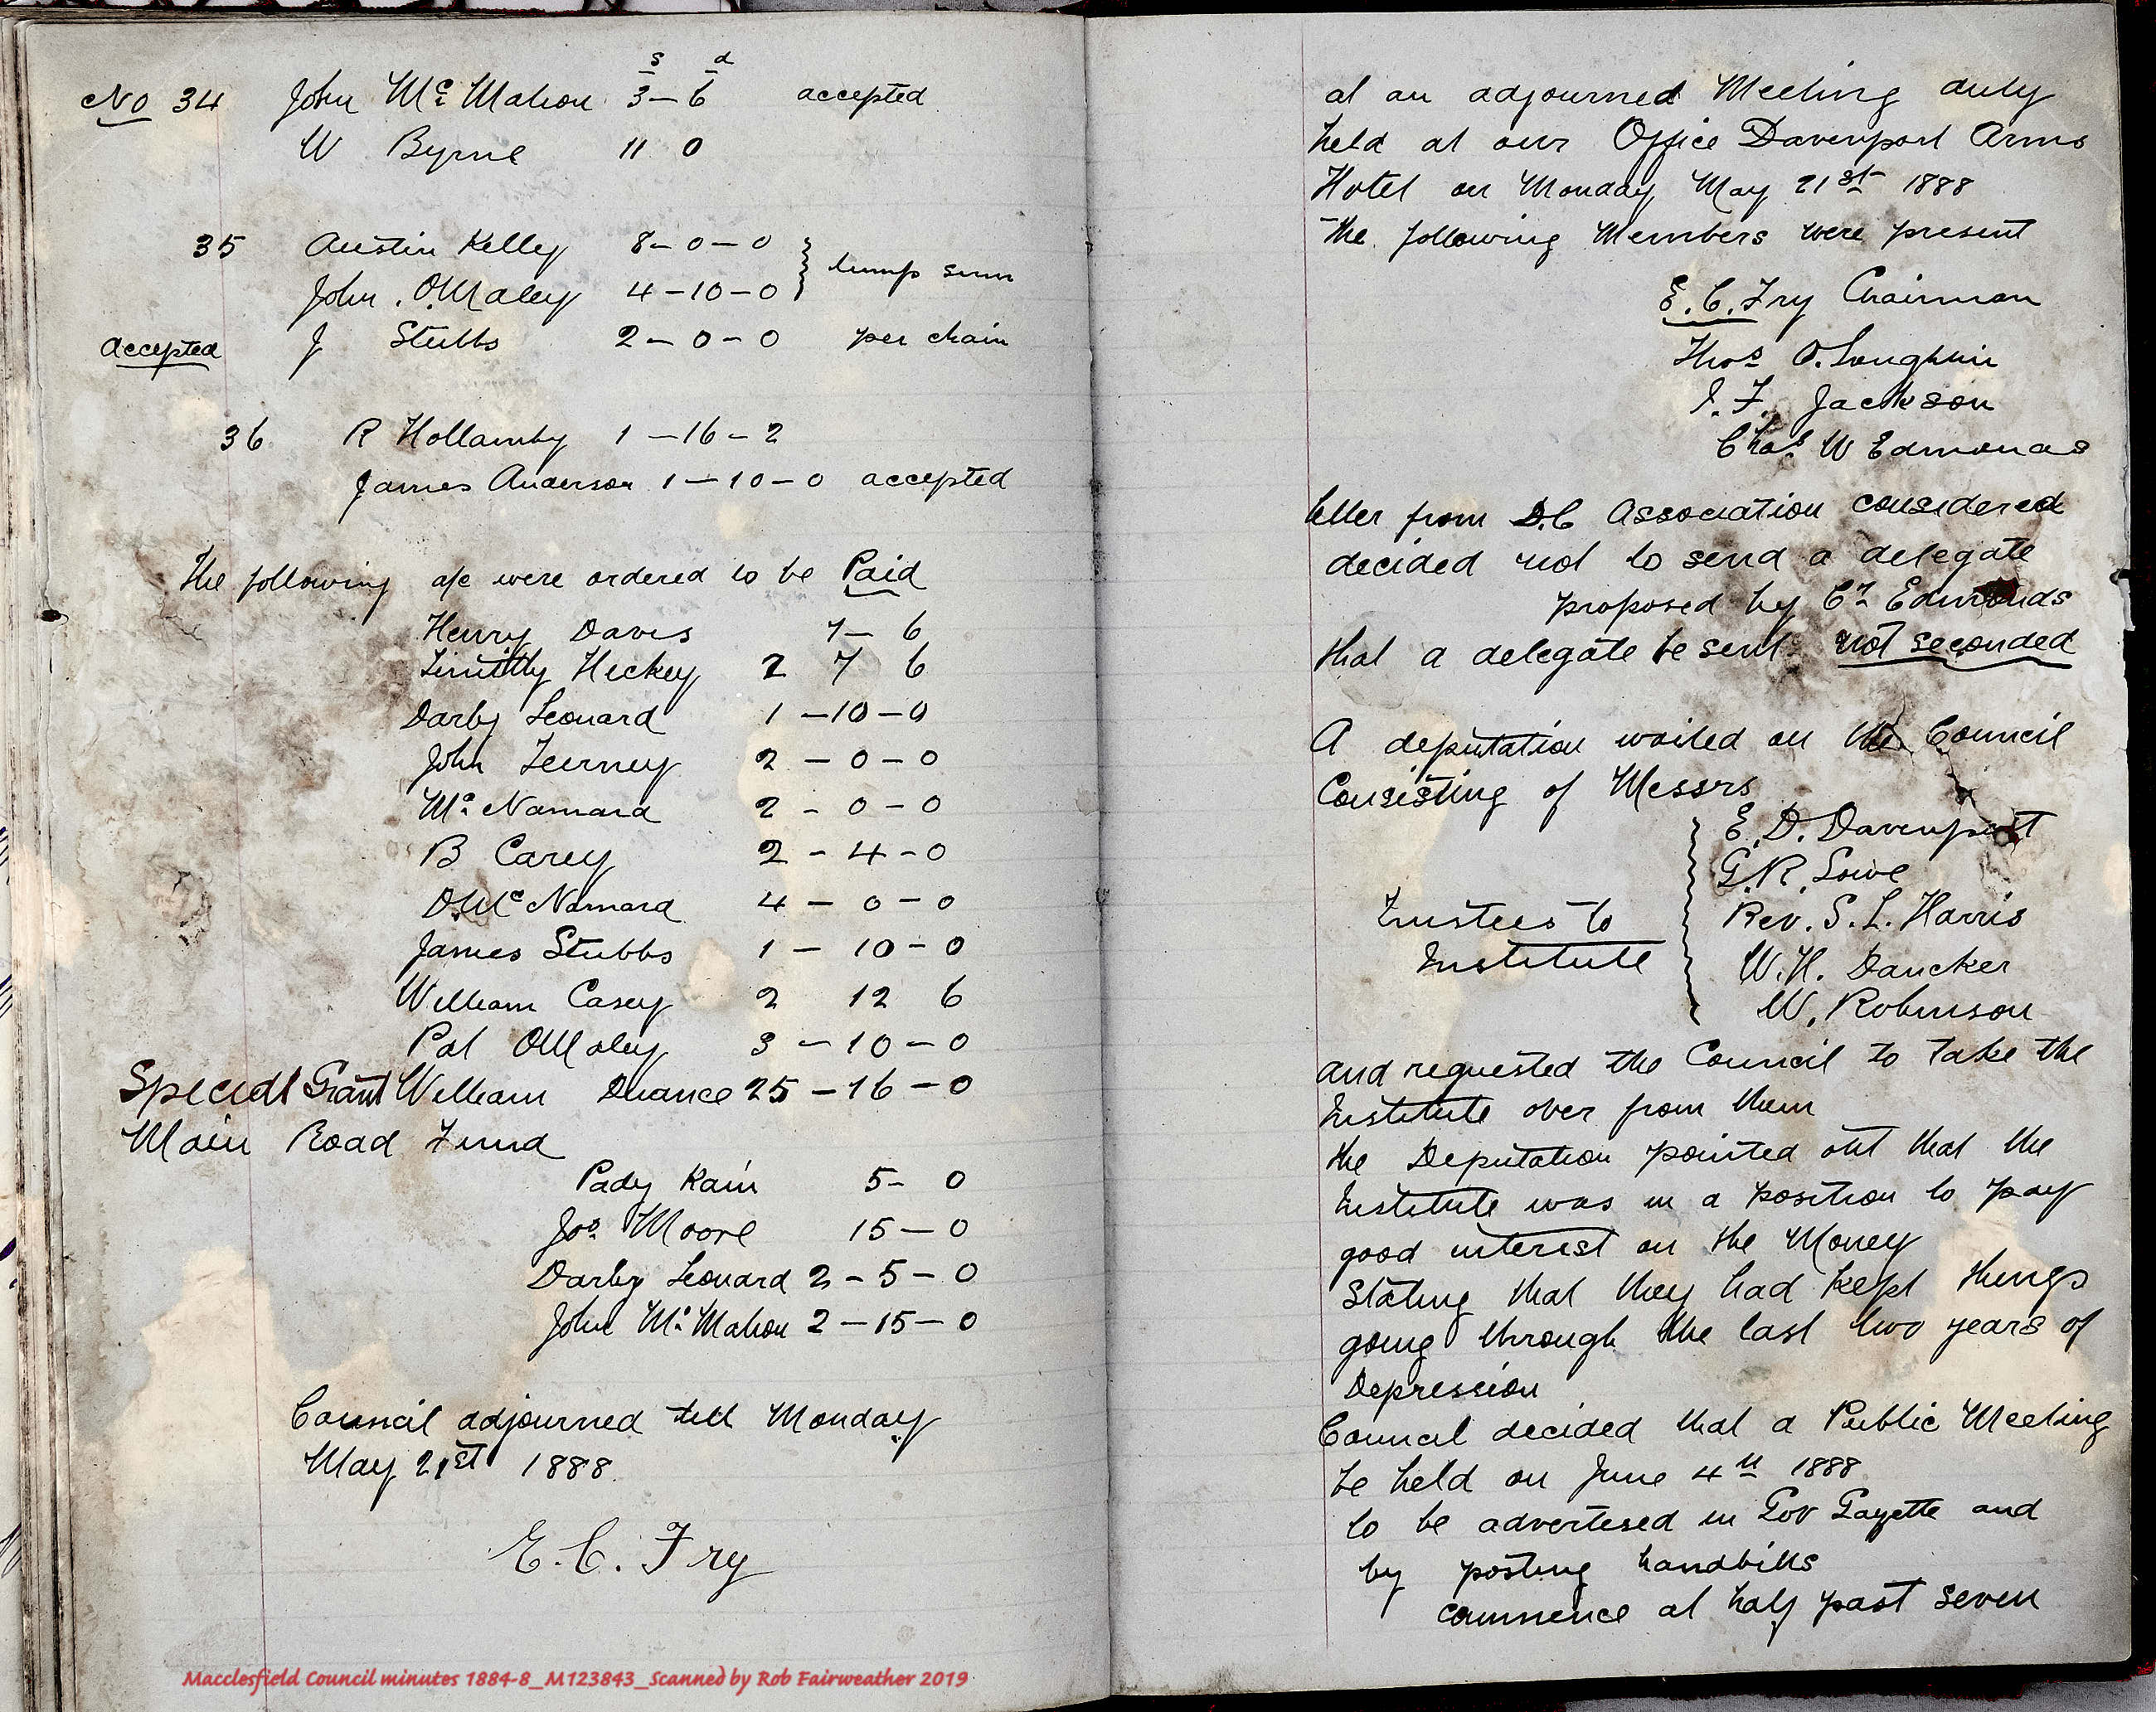 s d
No 34 John Mc Mahon 3-6 accepted
W Byrne 11 0
35 Austin Kelly 8-0-0
lump sum
John O.Maley 4-10-0
accepted J Stubbs 2-0-0 per chain
36 R Hollamby 1-16-2
James Anderson 1-10-0 accepted
The following a/c were ordered to be Paid
Henry Davis 7-6
Timithy Hickey 2 7 6
Darby Leonard 1-10-0
John Teirney 2-0-0
Mc Namara 2-0-0
B Carey 2-4-0
D.Mc Namara 4-0-0
James Stubbs 1-10-0
William Casey 2 12 6
Pat OMaley 3-10-0
Special Grant William Dhance 25-16-0
Main Road Fund
Pady Kain 5-0
Jos Moore 15-0
Darby Leonard 2-5-0
John Mc Mahon 2-15-0
Council adjourned till Monday
May 21st 1888
E. C. Fry
Macclesfield Council minutes 1884-8_M123843_Scanned by Rob Fairweather 2019
at an adjourned Meeting duly
held at our Office Davenport Arms
Hotel on Monday May 21st 1888
The following Members were present
E. C. Fry Chairman
Thos O.Loughlin
J. F. Jackson
Chas W Edmonds
letter from D.C Association considered
decided not to send a delegate
proposed by Cr Edmonds
that a delegate be sent not seconded
A deputation waited on the Council
Consisting of Messrs
E. D. Davenport
G.R. Lowe
Trustees to Rev. S. L. Harris
Institute W.H. Dancker
W. Robinson
and requested the Council to take the
Institute over from them
the Deputation pointed out that the
Institute was in a position to pay
good interest on the Money
Stating that they had kept things
going through the last two years of
Depression
Council decided that a Public Meeting
be held on June 4th 1888
to be advertesed in Gov Gazette and
by posting handbills
commence at half past seven